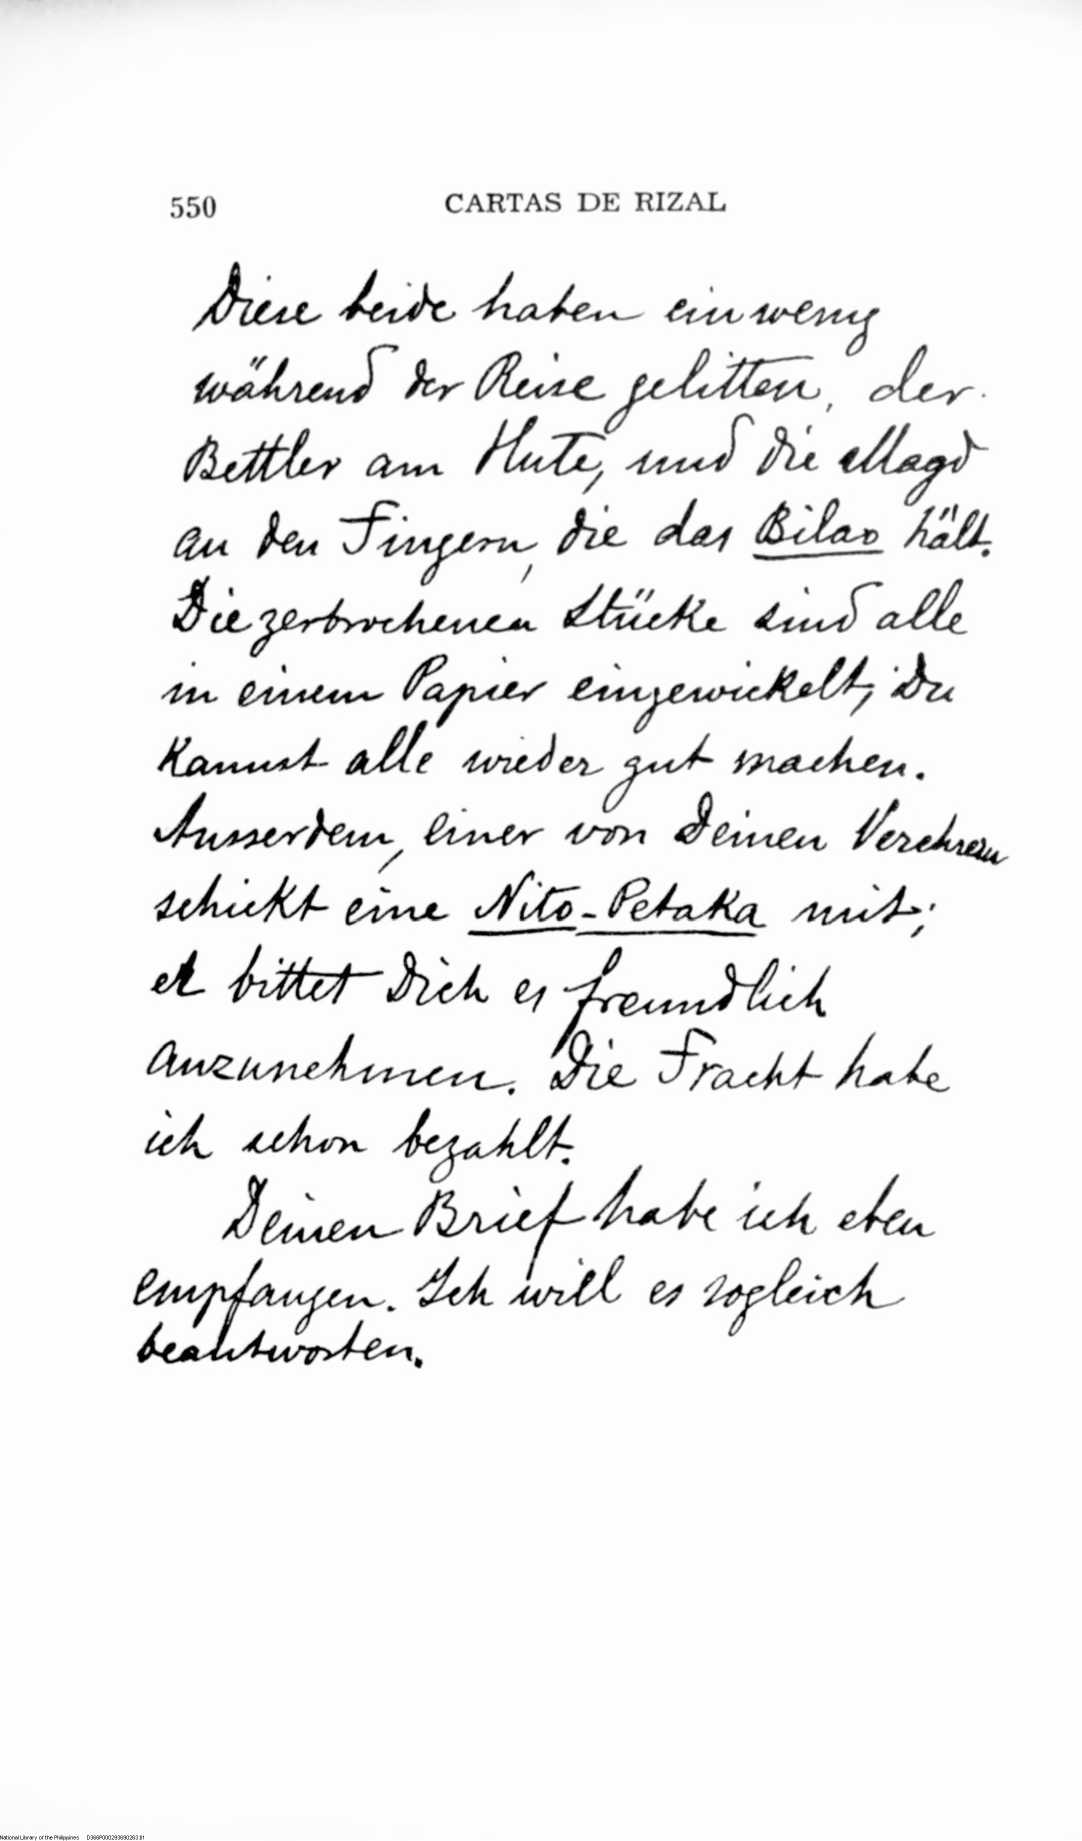 550 CARTAS DE RIZAL
Diese beide haben ein wenig
während der Reise gelitten, der
Bettler am Hute, und die Magd
an den Fingern, die das Bilao hält.
Die zerbrochenen Stücke sind alle
in einem Papier eingewickelt; Du
kannst alle wieder gut machen.
Ausserdem, einer von Deinen Verehrern
schickt eine Nito-Petaka mit;
er bittet Dich es freundlich
anzunehmen. Die Fracht habe
ich schon bezahlt.
Deinen Brief habe ich eben
empfangen. Ich will es sogleich
beantworten.
National Library of the Philippines